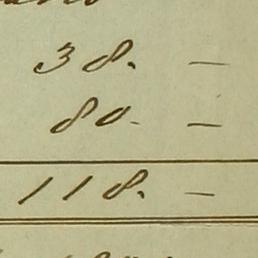 38. —
80. —
118. —